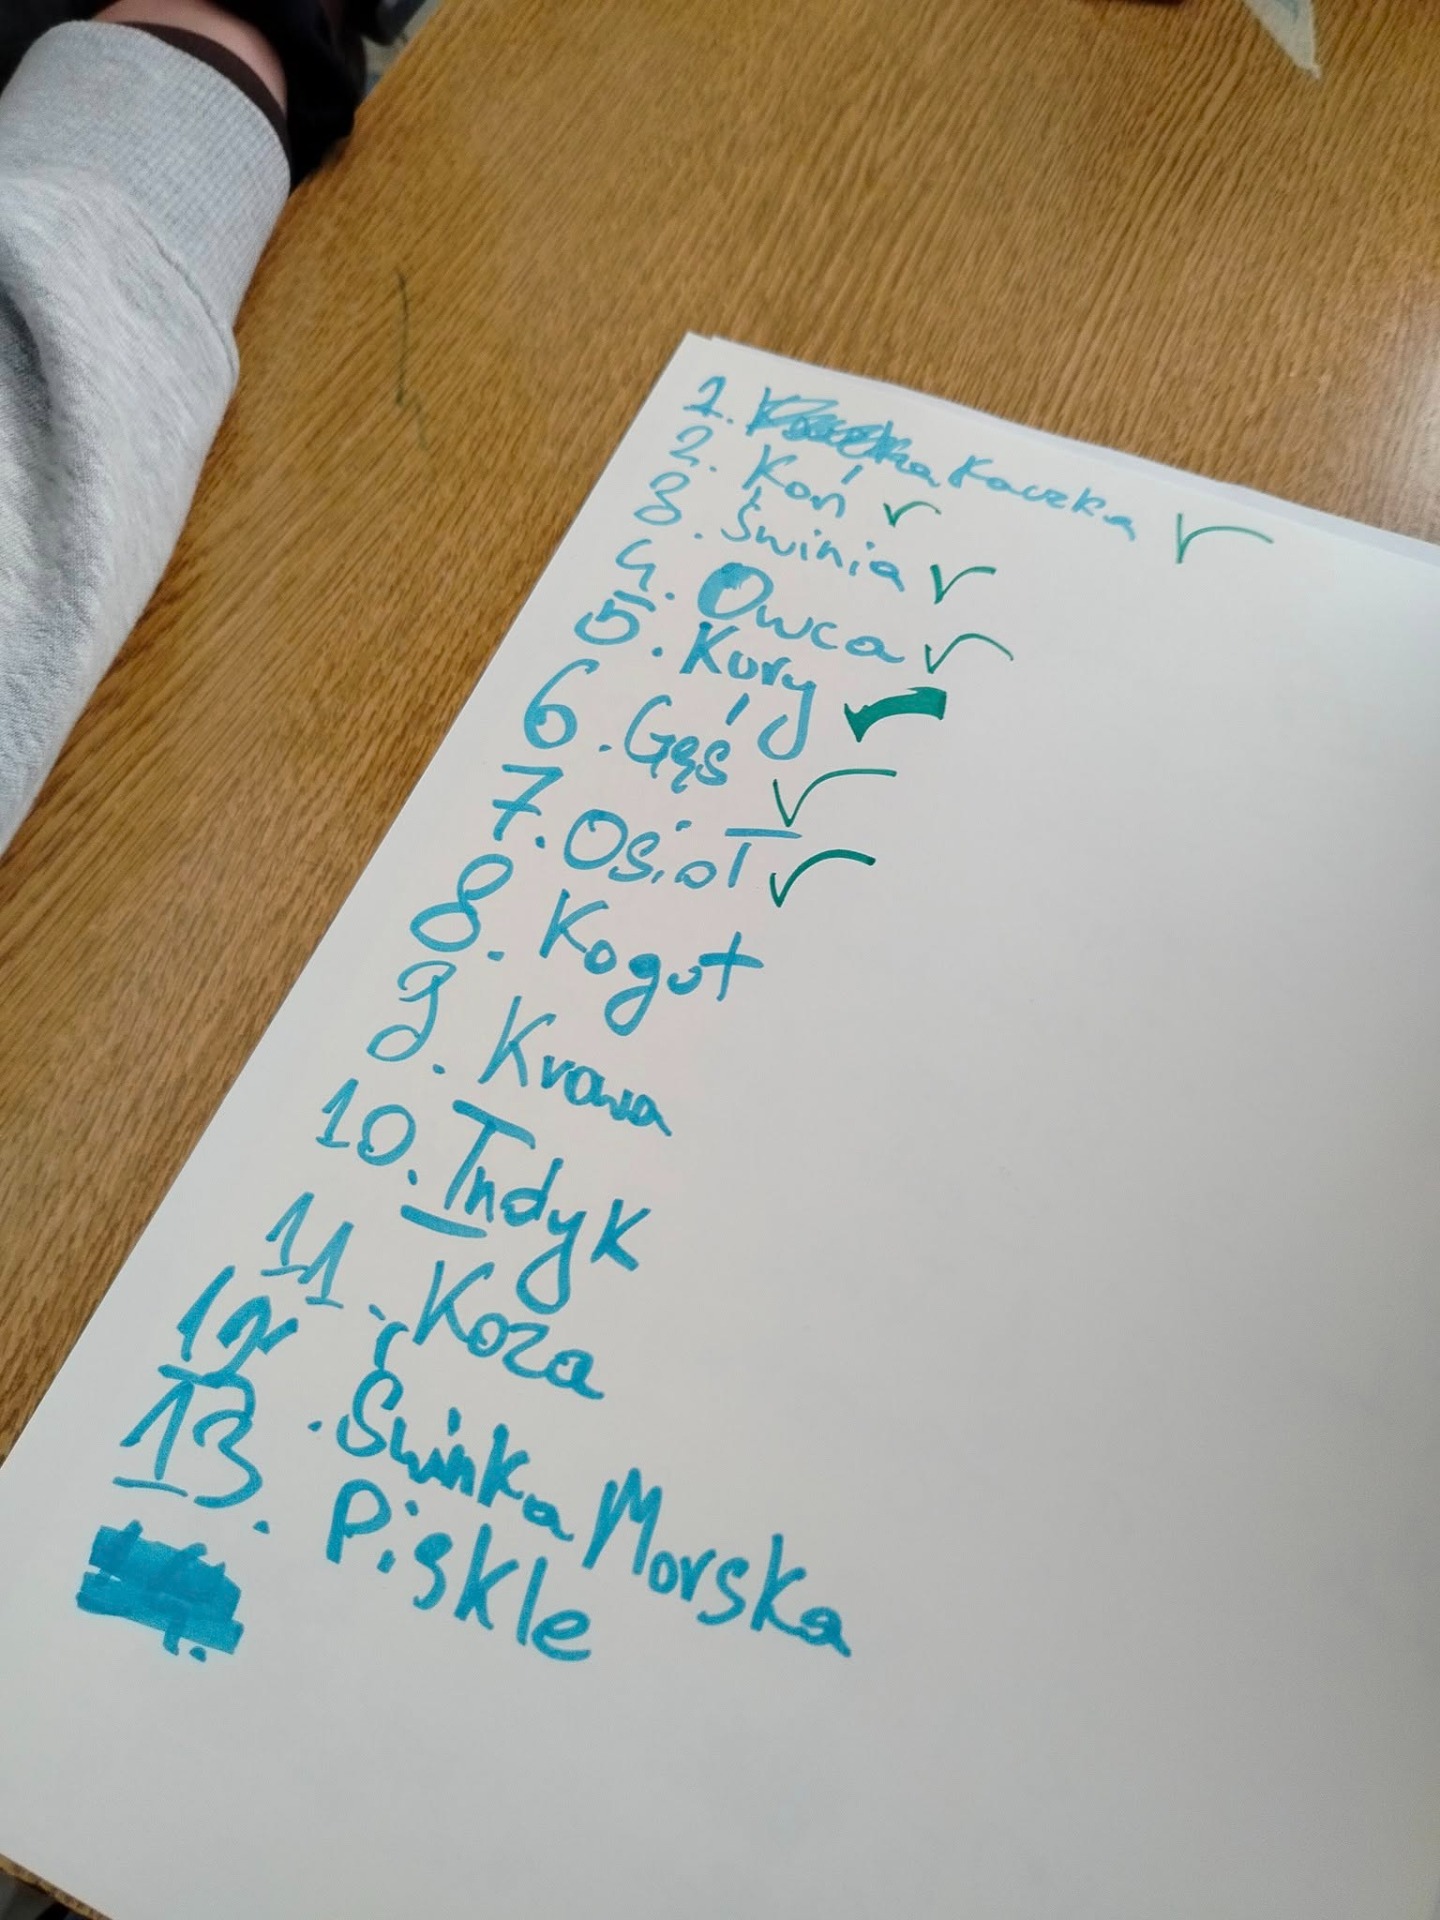 1. Kaczka
2. Koń
3. Świnia
4. Owca
5. Kury
6. Gęś
7. Osioł
8. Kogut
9. Krowa
10. Indyk
11. Koza
12. Świnka Morska
13. Piskle